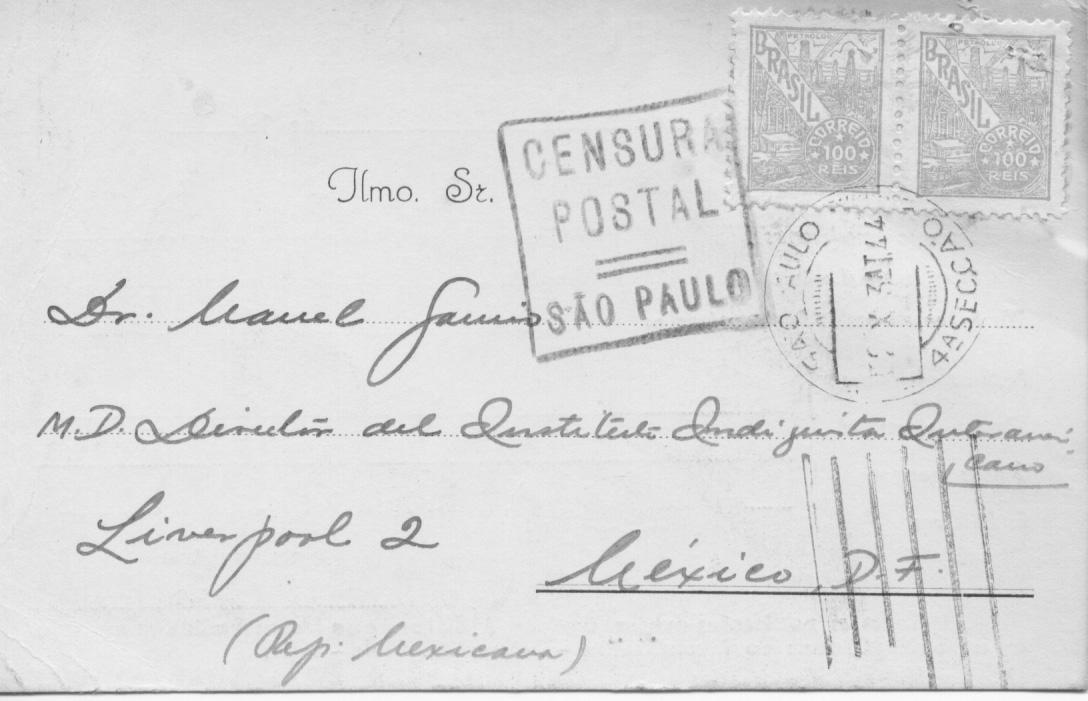 PETROLEO PETROLEO
BRASIL BRASIL
CORREIO CORREIO
100 100
REIS REIS
CENSURA
POSTAL
SÃO PAULO
Ilmo. Sr.
PAULO 4A SECÇÃO
44
Dr. Manuel Gamio
M.D. Director del Instituto Indigenista Interameri
cano
Liverpool 2
México, D.F.
(Rep. Mexicana)